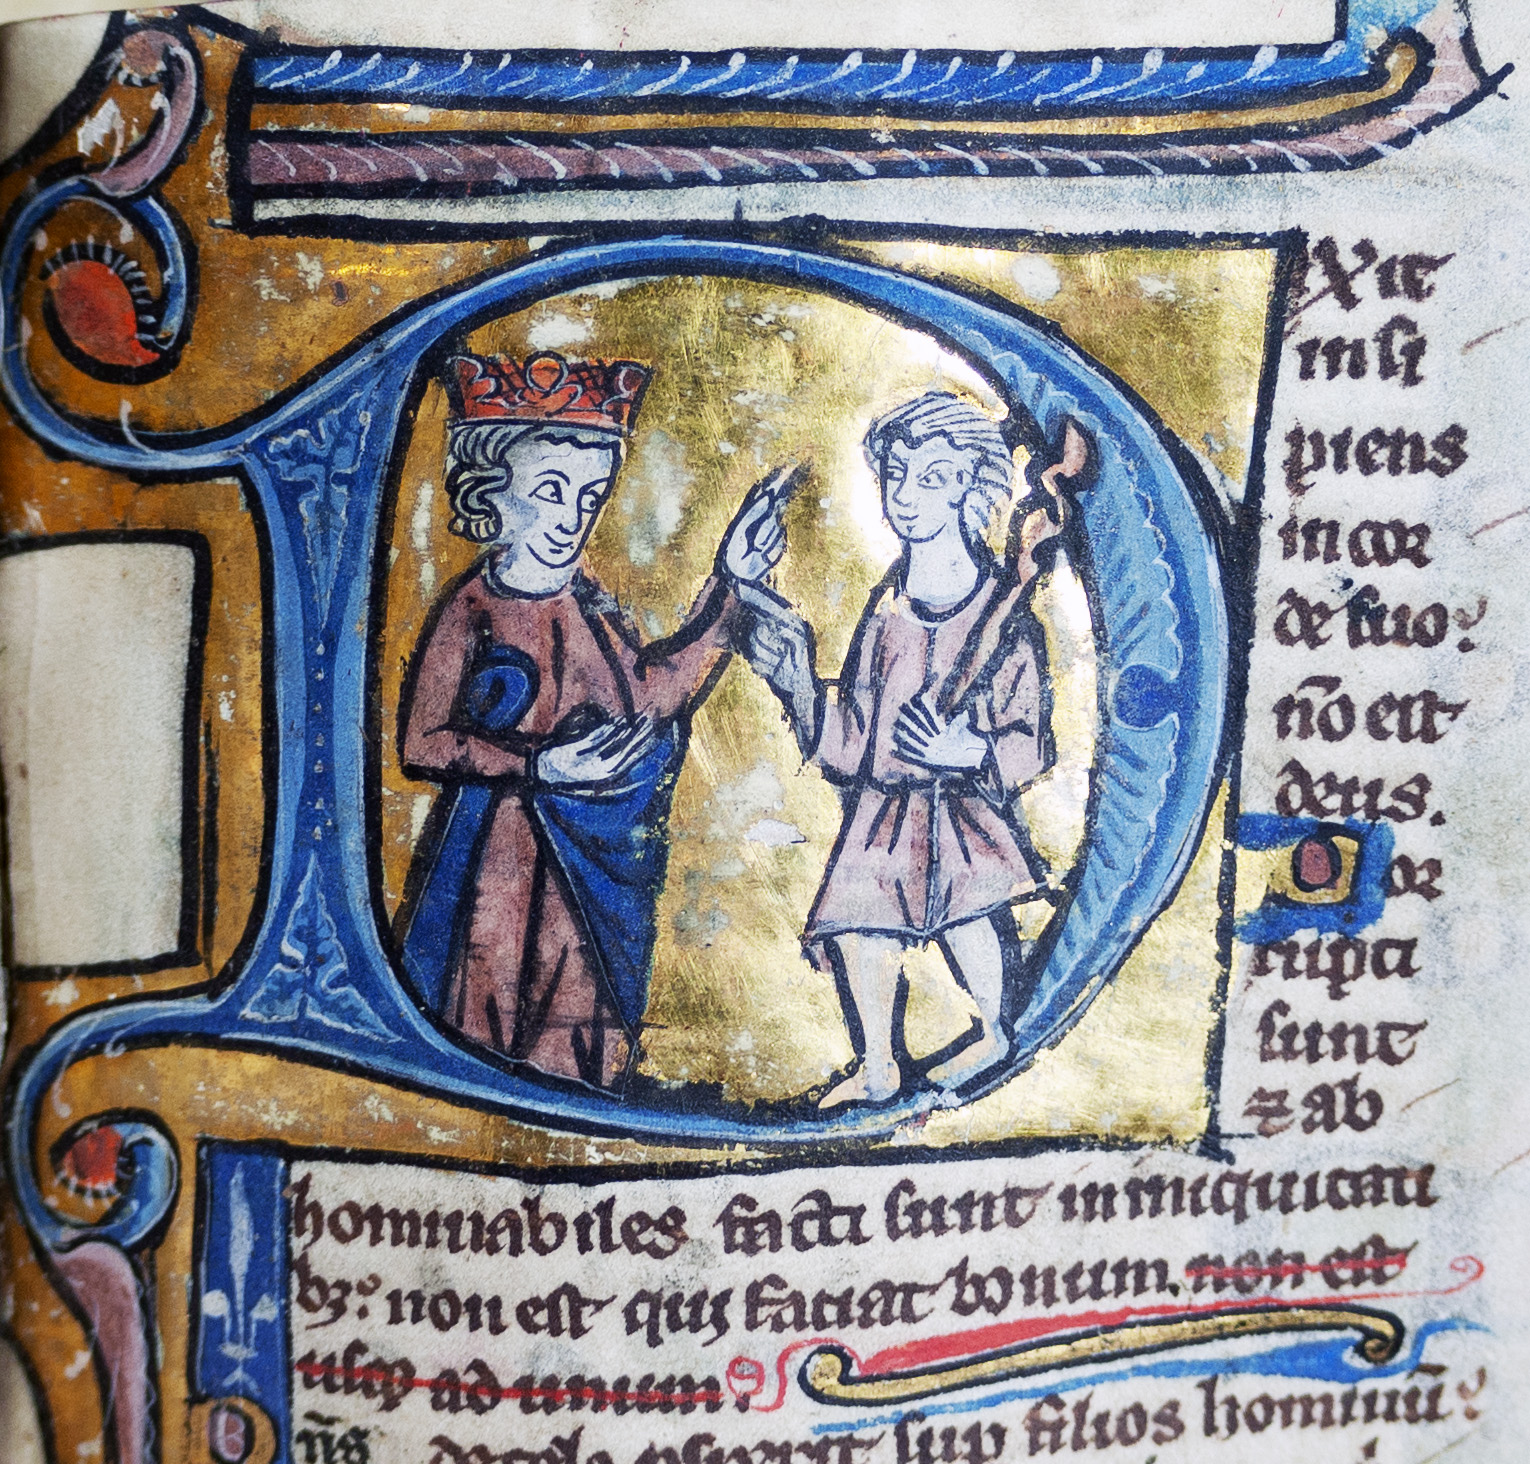 DIXit
insi
piens
in cor
de suo.
nō est
deus.
Cor
rupti
sunt
⁊ ab
hominabiles facti sunt in iniquitati
bꝫ. non est qui faciat bonum. non est
usqꝫ ad unum.
Dn̄s de celo ꝓspexit sup filios hominū.